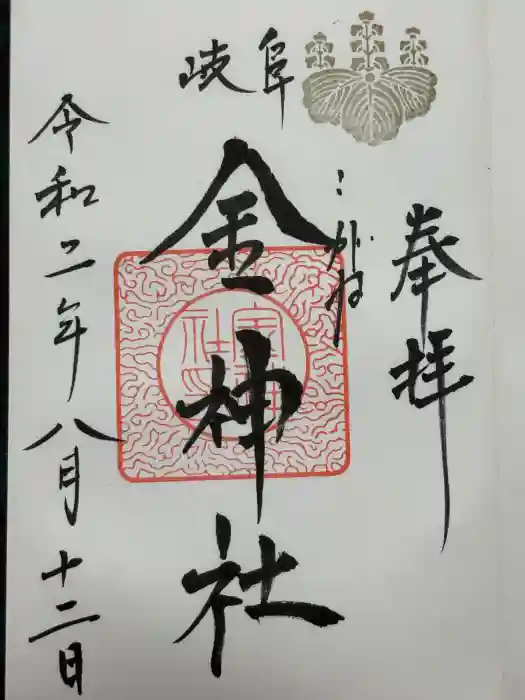 奉拝
岐阜
金神社
こがね
令和二年八月十二日